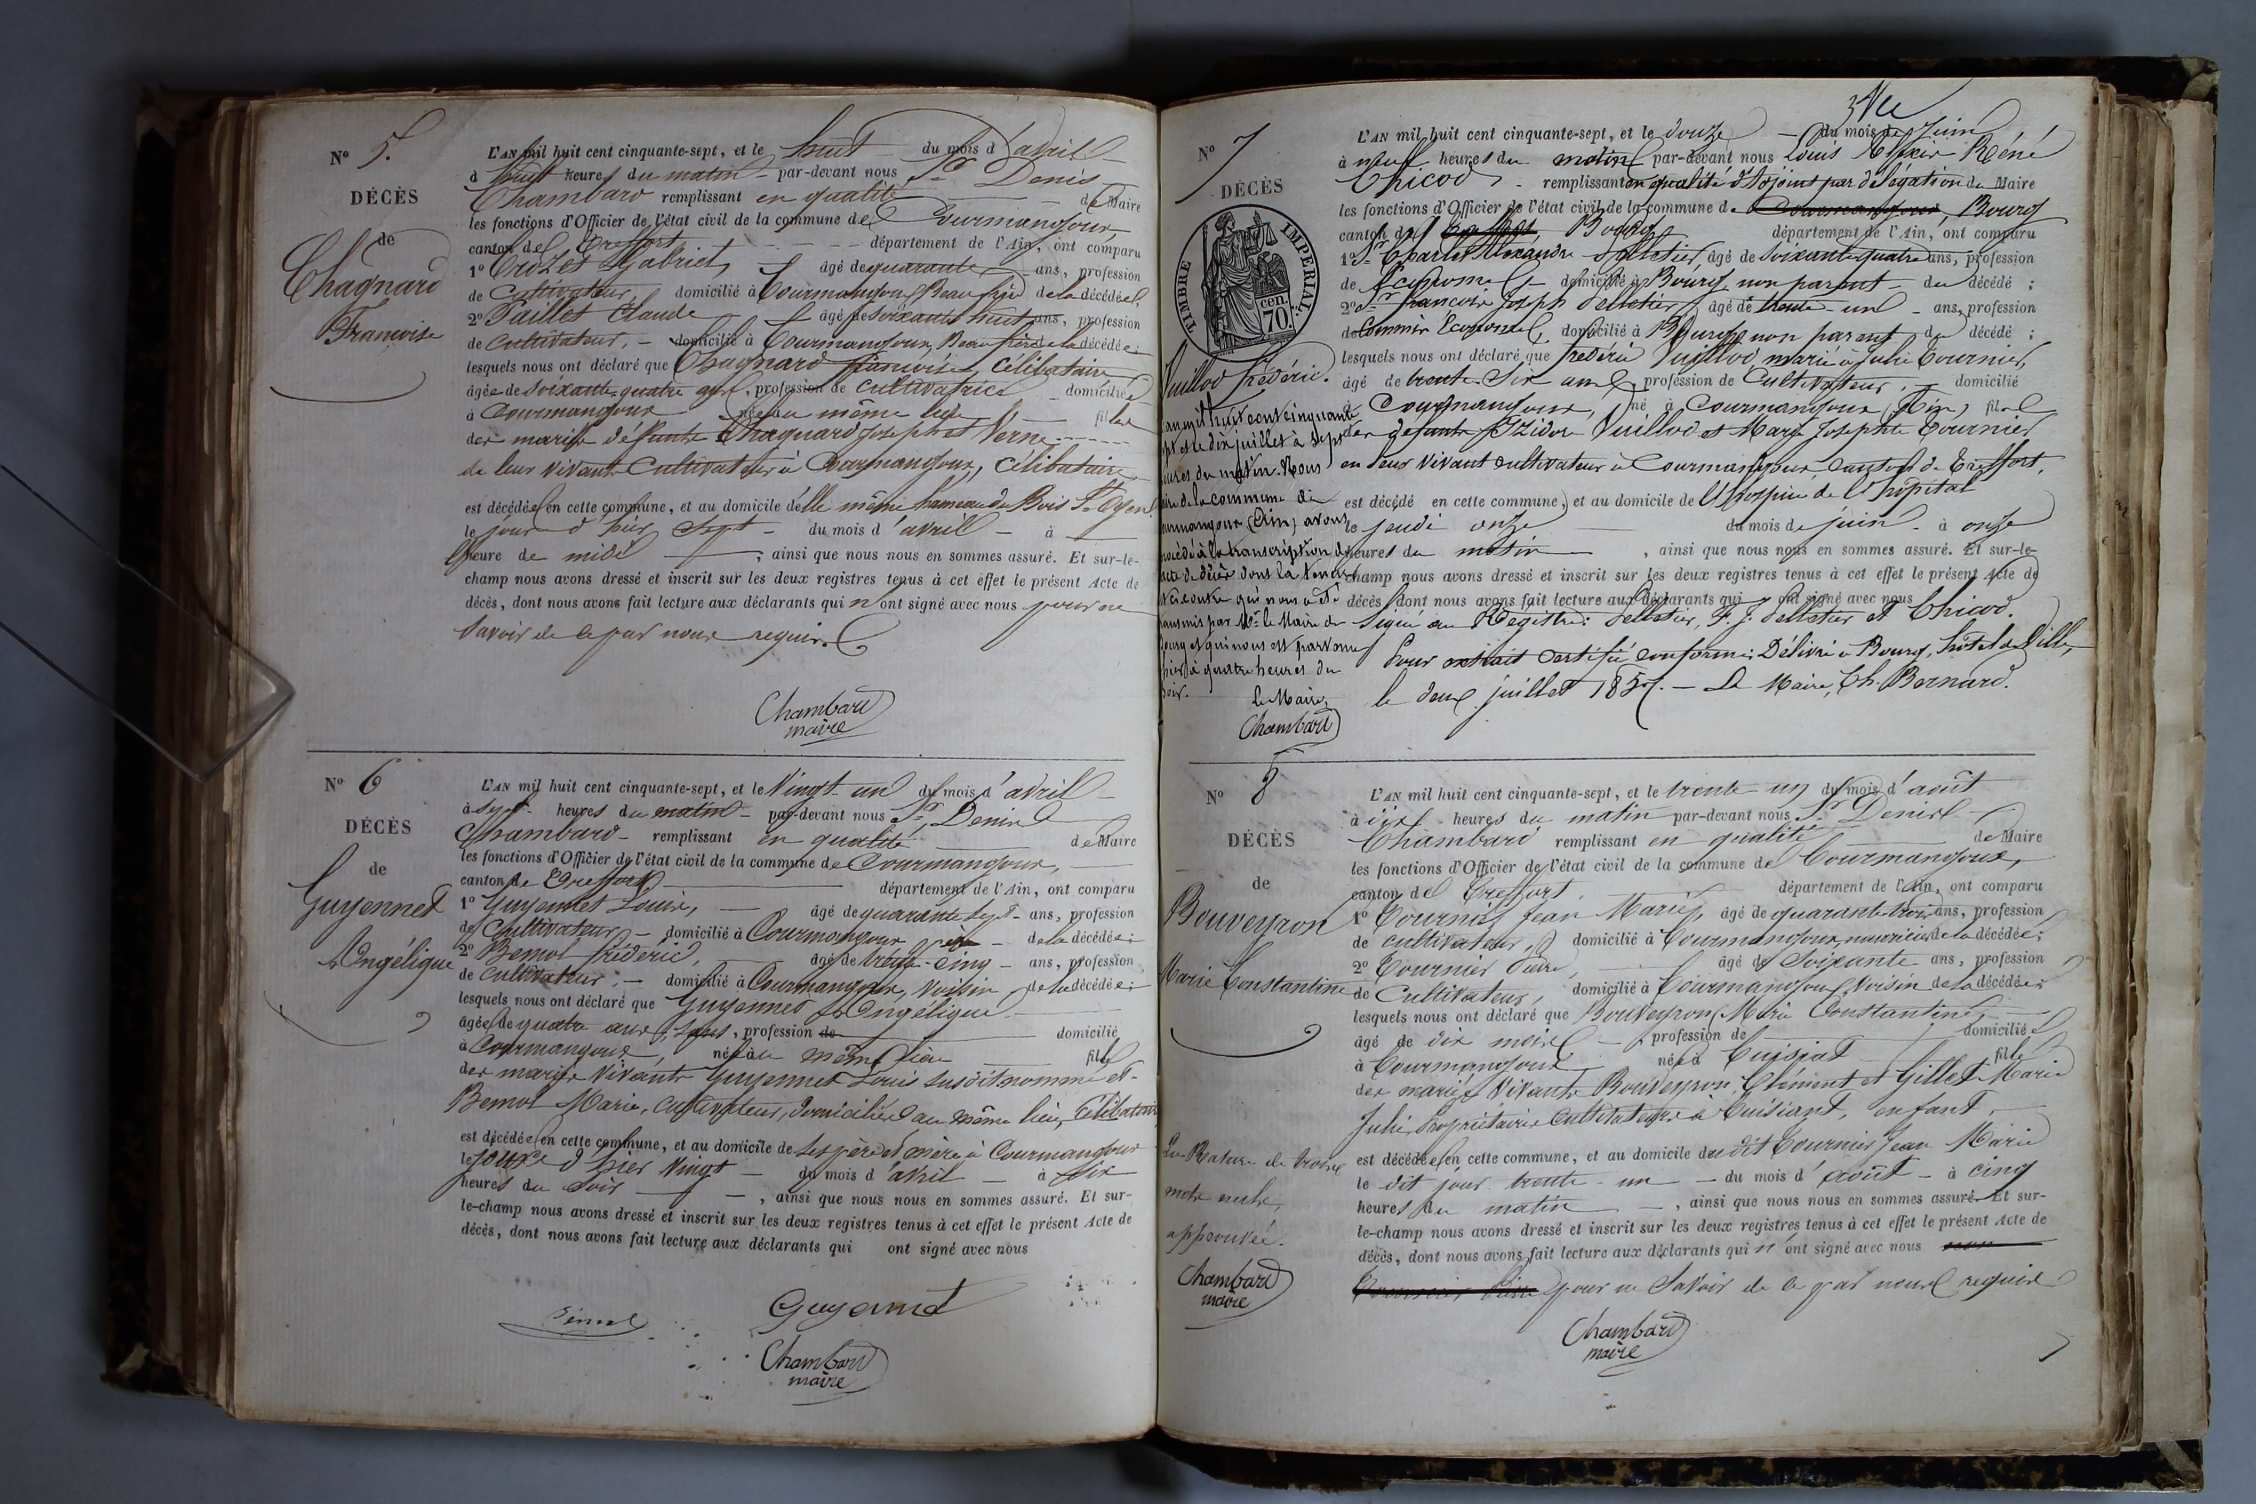 N° 5.
DÉCÈS
de
Chagnard
Françoise
L'AN mil huit cent cinquante-sept, et le huit du mois d'avril
à huit heures du matin par-devant nous Sr Denis
Chambard remplissant en qualité de Maire
les fonctions d'Officier de l'état civil de la commune de Courmangoux
canton de Treffort département de l'Ain, ont comparu
1° Crozet Gabriel, âgé de quarante ans, profession
de Cultivateur, domicilié à Courmangoux Beau frère de la décédée,
2° Paillet Claude âgé de soixante huit ans, profession
de Cultivateur, domicilié à Courmangoux, Beau frère de la décédée;
lesquels nous ont déclaré que Chagnard françoise, Célibataire
âgée de soixante-quatre ans, profession de cultivatrice domiciliée
à Courmangoux née au même lieu fille
des mariés défunts Chagnard Joseph et Verne
de leur vivant Cultivateurs à Courmangoux, Célibataire
est décédée en cette commune, et au domicile d'elle même hameau du Bois St
le jour d'hier sept du mois d'avril à
heure de midi, ainsi que nous nous en sommes assuré. Et sur-le-
champ nous avons dressé et inscrit sur les deux registres tenus à cet effet le présent Acte de
décès, dont nous avons fait lecture aux déclarants qui n'ont signé avec nous pour ne
savoir de ce par nous requis.
Chambard
maire
N° 6
DÉCÈS
de
Guyennet
Angélique
L'AN mil huit cent cinquante-sept, et le Vingt un du mois d'avril
à sept heures du matin par-devant nous Sr Denis
Chambard remplissant en qualité de Maire
les fonctions d'Officier de l'état civil de la commune de Courmangoux,
canton de Treffort département de l'Ain, ont comparu
1° Guyennet Louis, âgé de quarante sept ans, profession
de Cultivateur domicilié à Courmangoux père de la décédée;
2° Bemol frédéric, âgé de trente-cinq ans, profession
de Cultivateur, domicilié à Courmangoux, Voisin de la décédée;
lesquels nous ont déclaré que Guyennet Angélique
âgée de quatre ans, sans, profession de domicilié
à Courmangoux, née au même lieu fille
des mariés Vivants Guyennet Louis susdit nommé et
Bemol Marie, Cultivateurs, domiciliés au même lieu, Célibataire
est décédée en cette commune, et au domicile de ses père et mère à Courmangoux
le jour d'hier Vingt du mois d'avril à six
heures du soir, ainsi que nous nous en sommes assuré. Et sur-
le-champ nous avons dressé et inscrit sur les deux registres tenus à cet effet le présent Acte de
décès, dont nous avons fait lecture aux déclarants qui ont signé avec nous
Bemol Guyennet
Chambard
maire
3 Vu
N° 7
DÉCÈS
TIMBRE IMPERIAL.
70 cen.
Vuillod frédéric.
L'an mil huit cent cinquante
sept et le dix juillet à sept
heures du matin. Nous
maire de la commune de
Courmangoux (Ain) avons
procédé à la transcription de
l'acte de décès dont la teneur
est ci contre qui nous a été
transmis par Mr le Maire de
Bourg et qui nous est parvenu
hier à quatre heures du
soir.
le Maire,
Chambard
L'AN mil huit cent cinquante-sept, et le douze du mois de Juin
à neuf heures du matin par-devant nous Louis René
Chicod remplissant en qualité d'Adjoint par délégation du Maire
les fonctions d'Officier de l'état civil de la commune de Courmangoux, Bourg
canton de Treffort Bourg département de l'Ain, ont comparu
1° Sr Charles Alexandre Pelletier, âgé de soixante quatre ans, profession
de Econome domicilié à Bourg non parent du décédé;
2° Sr francois Joseph Pelletier, âgé de trente-un ans, profession
de Commis Econome, domicilié à Bourg non parent du décédé;
lesquels nous ont déclaré que frédéric Vuillod marié à Julie Tournier,
âgé de trente-six ans, profession de Cultivateur, domicilié
à Courmangoux, né à Courmangoux (Ain) fils
des défunts Izidor Vuillod et Marie Josephte Tournier
en leur vivant cultivateurs à Courmangoux canton de Treffort,
est décédé en cette commune, et au domicile de l'hospice de l'hôpital
le jeudi onze du mois de juin à onze
heures du matin, ainsi que nous nous en sommes assuré. Et sur-le-
champ nous avons dressé et inscrit sur les deux registres tenus à cet effet le présent Acte de
décès, dont nous avons fait lecture aux déclarants qui ont signé avec nous
Signé au Registre: Pelletier, F. J. Pelletier et Chicod.
Pour extrait certifié conforme; Délivré à Bourg, hôtel de Ville,
le deux juillet 1857. — Le Maire, Ch. Bernard.
N° 8
DÉCÈS
de
Bouveyron
Marie Constantine
La Rature de trois
mots nuls,
approuvée.
Chambard
maire
L'AN mil huit cent cinquante-sept, et le trente un du mois d'août
à six heures du matin par-devant nous Sr Denis
Chambard remplissant en qualité de Maire
les fonctions d'Officier de l'état civil de la commune de Courmangoux,
canton de Treffort département de l'Ain, ont comparu
1° Tournier Jean Marie, âgé de quarante-trois ans, profession
de cultivateur, domicilié à Courmangoux, nourricier de la décédée;
2° Tournier Pierre, âgé de Soixante ans, profession
de Cultivateur, domicilié à Courmangoux Voisin de la décédée;
lesquels nous ont déclaré que Bouveyron Marie Constantine,
âgé de dix mois, profession de domicilié
à Courmangoux née à Cuisiat fille
des mariés Vivants Bouveyron Clément et Gillet Marie
Julie, Propriétaires Cultivateurs à Cuisiat, enfant,
est décédée en cette commune, et au domicile du dit Tournier Jean Marie
le dit jour trente-un du mois d'août à cinq
heures du matin, ainsi que nous nous en sommes assuré. Et sur-
le-champ nous avons dressé et inscrit sur les deux registres tenus à cet effet le présent Acte de
décès, dont nous avons fait lecture aux déclarants qui n'ont signé avec nous
pour ne savoir de ce par nous requis
Chambard
maire